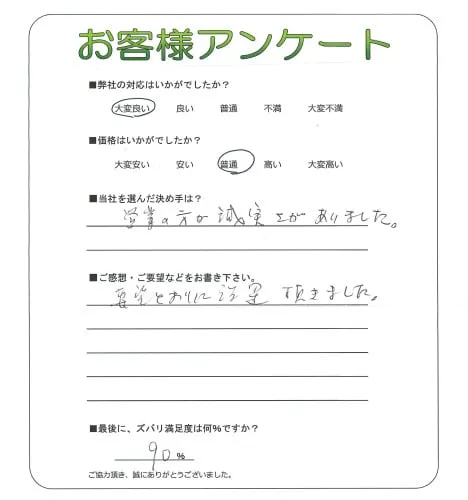 お客様アンケート
■弊社の対応はいかがでしたか？
大変良い 良い 普通 不満 大変不満
■価格はいかがでしたか？
大変安い 安い 普通 高い 大変高い
■当社を選んだ決め手は？
営業の方が誠実さがありました。
■ご感想・ご要望などをお書き下さい。
要望どおりに設置頂きました。
■最後に、ズバリ満足度は何%ですか？
90%
ご協力頂き、誠にありがとうございました。